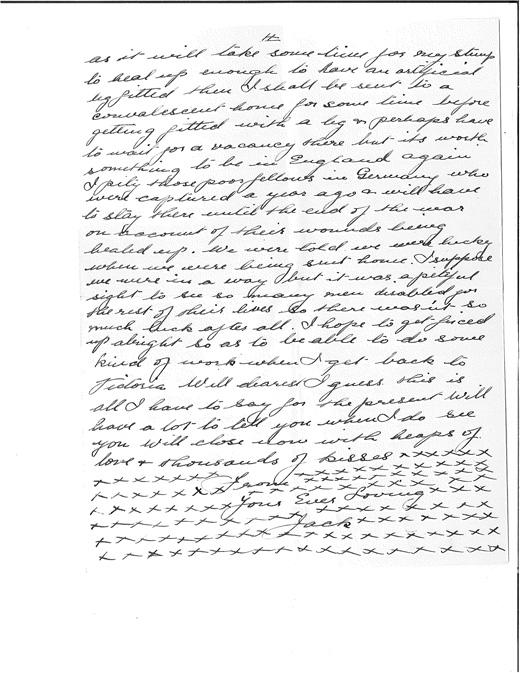 4
as it will take some time for my stump
to heal up enough to have an artificial
leg fitted then I shall be sent to a
convalescent home for some time before
getting fitted with a leg & perhaps have
to wait for a vacancy there but its worth
something to be in England again
I pity those poor fellows in Germany who
were captured a year ago & will have
to stay there until the end of the war
on account of their wounds being
healed up. We were told we were lucky
when we were being sent home. I suppose
we were in a way but it was a pitiful
sight to see so many men disabled for
the rest of their lives so there wasn't so
much luck after all. I hope to get fixed
up alright so as to be able to do some
kind of work when I get back to
Victoria Well dearest I guess this is
all I have to say for the present Will
have a lot to tell you when I do see
you will close now with heaps of
love & thousands of kisses x x x x x x x
x x x x x x x From x x x x x x x x x
x x x x x x x x x x x x x x x x x
x x x x x x x x Your Ever Loving x x x
x x x x x x x x x x x x x x x x
x x x x x x x x x Jack x x x x x x x
x x x x x x x x x x x x x x x x x
x x x x x x x x x x x x x x x x x